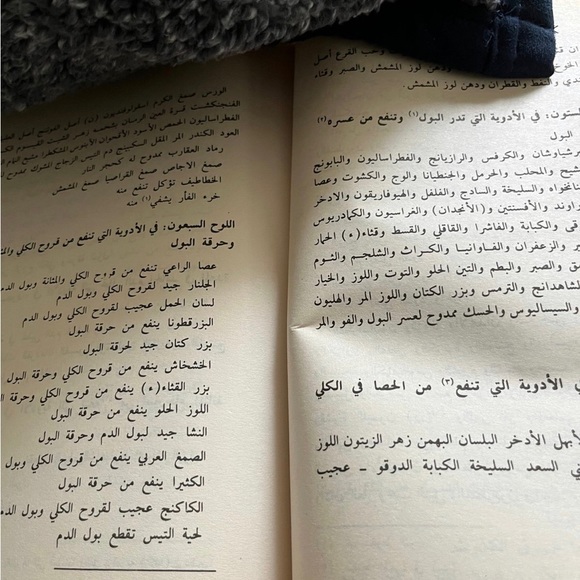 وحب القرع أصل
ودهن لوز المشمش والصبر وقثاء
ندي والنفط والقطران ودهن لوز المشمش.
في الأدوية التي تدر البول(١) وتنفع من عسره(٢)
البول
برشياوشان والكرفس والرازيانج والفطراساليون والبابونج
شيح والمحلب والحرمل والجنطيانا والوج والكشوت وعصا
نانخواه والسليخة والسادج والفلفل والهيوفاريقون والادخر
راوند والأفسنتين و(الأنجدان) والغراسيون والكمادريوس
في والكبابة والفاشرا والقاقلي والقسط وقثاء(ء) الحمار
ر والزعفران والفاوانيا والكراث والشلجم والثوم
ق والصبر والبطم والتين الحلو والتوت واللوز والخيار
لشاهدانج والترمس وبزر الكتان واللوز المر والهليون
والسيساليوس والحسك ممدوح لعسر البول والفو والمر
ي الأدوية التي تنفع(٣) من الحصا في الكلي
لأبهل الأدخر البلسان البهمن زهر الزيتون اللوز
ني السعد السليخة الكبابة الدوقو ــ عجيب
الورس صمغ الكرم
رماد العقارب ممدوح له كحجر النار
صمغ الاجاص صمغ القراصيا صمغ المشمش
الخطاطيف تؤكل تنفع منه
خرء الفأر يشفي(١) منه
اللوح السبعون: في الأدوية التي تنفع من قروح الكلي والمثا
وحرقة البول
عصا الراعي تنفع من قروح الكلي والمثانة وبول الدم
الجلنار جيد لقروح الكلي وبول الدم
لسان الحمل عجيب لقروح الكلي وبول الدم
البزرقطونا ينفع من حرقة البول
بزر كتان جيد لحرقة البول
الخشخاش ينفع من قروح الكلي وحرقة البول
بزر القثاء(ء) ينفع من قروح الكلي وحرقة البول
اللوز الحلو ينفع من حرقة البول
النشا جيد لبول الدم وحرقة البول
الصمغ العربي ينفع من قروح الكلي وبول
الكثيرا ينفع من حرقة البول
الكاكنج عجيب لقروح الكلي وبول الدم
لحية التيس تقطع بول الدم